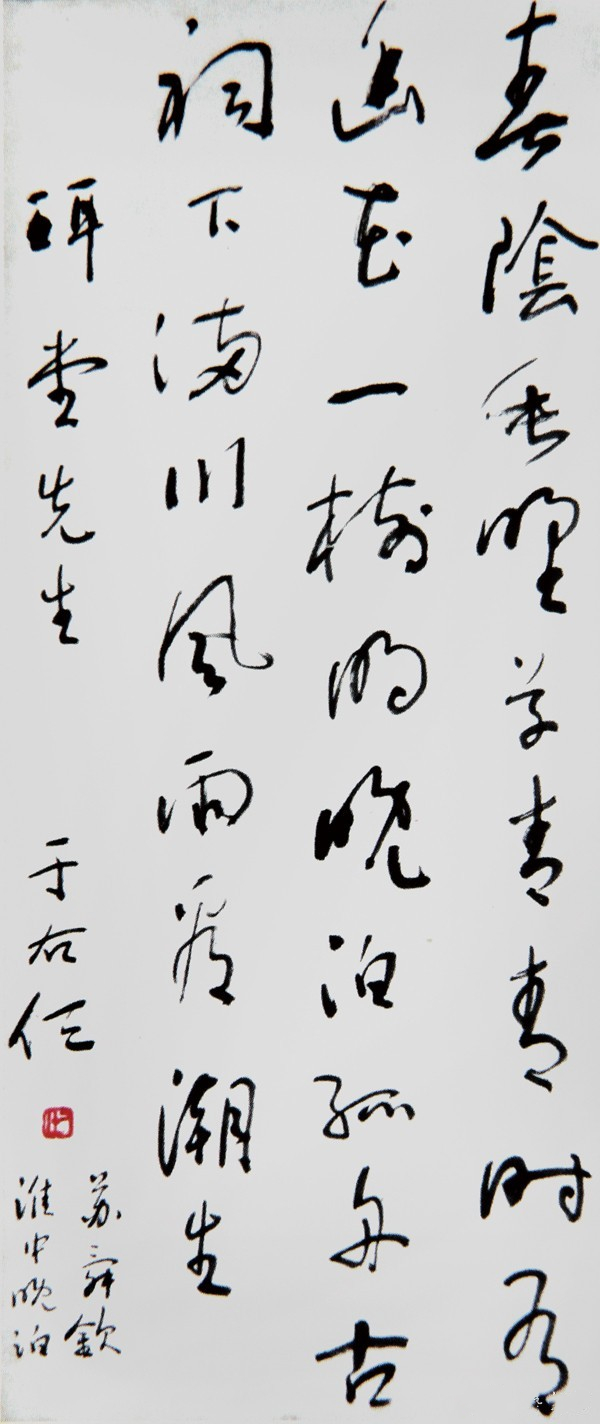 春陰垂野草青青时有
幽花一樹明晚泊孤舟古
祠下满川風雨看潮生
珥堂先生
于右任
苏舜欽
淮中晚泊